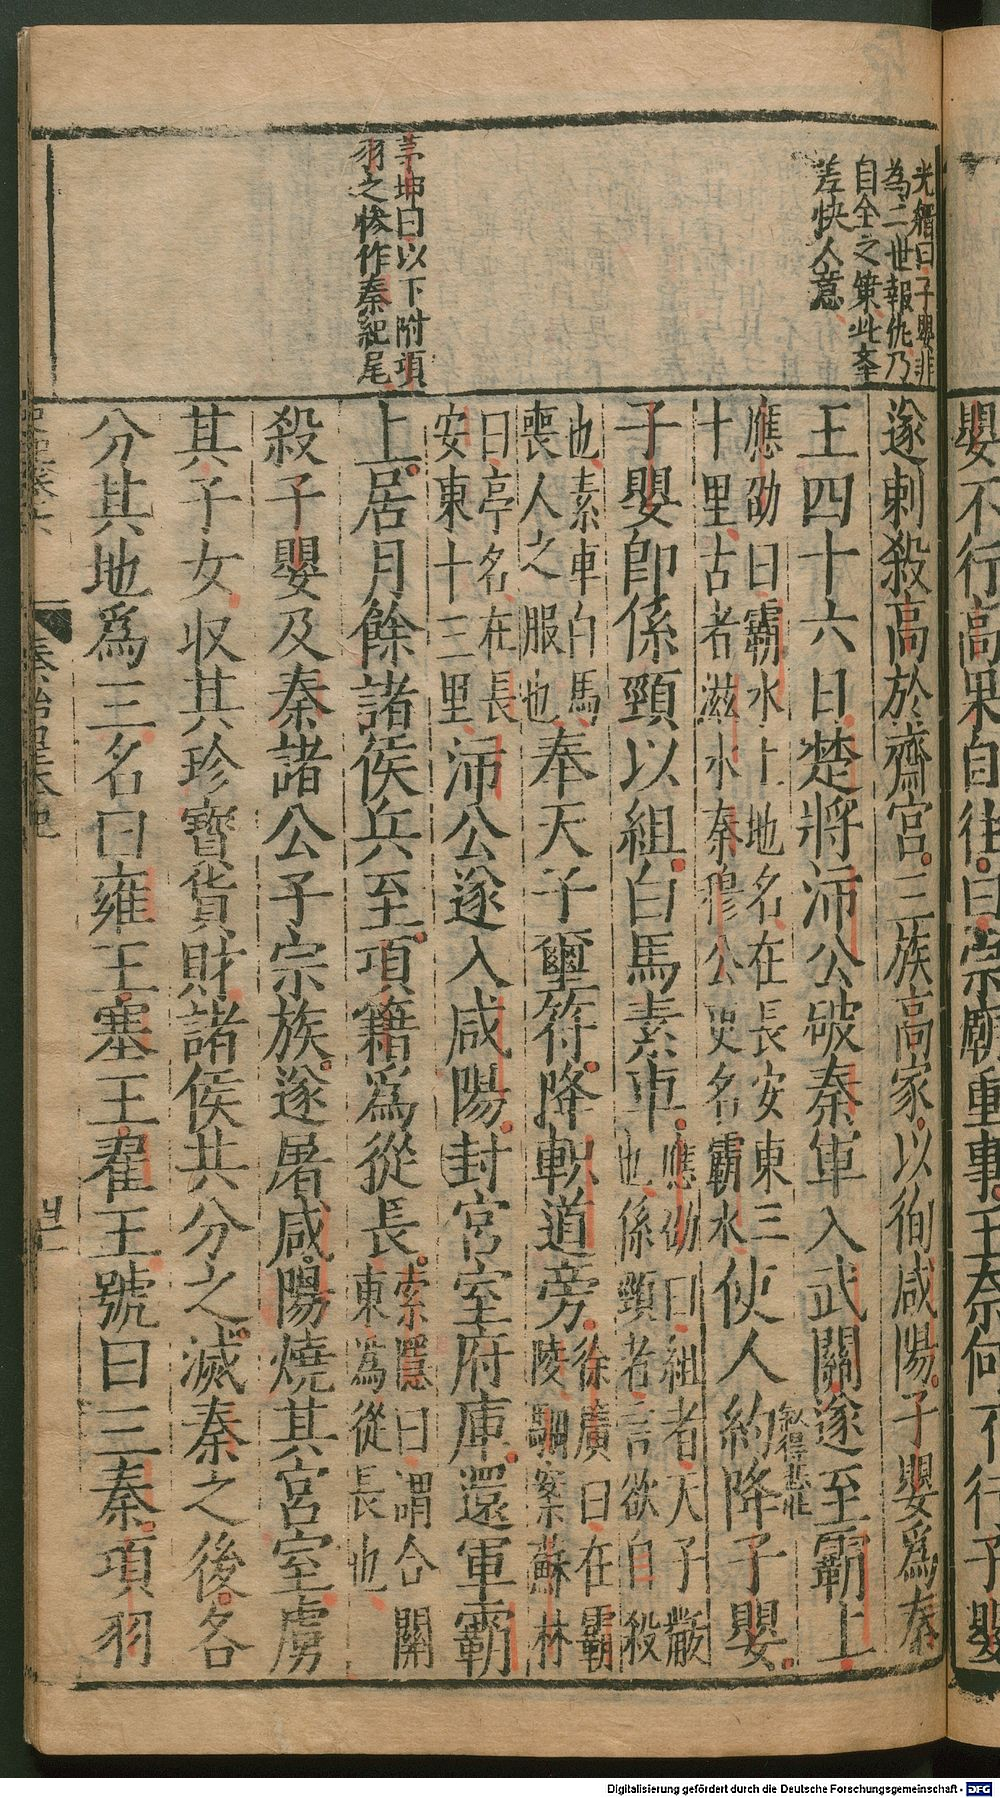 嬰不行高果自往曰宗廟重事王奈何不行子嬰
光縉曰子嬰非
為二世報仇乃
自全之策此舉
差快人意
茅坤曰以下附項
羽之慘作秦紀尾
遂刺殺高於齋宮三族高家以徇咸陽子嬰爲秦
王四十六日楚將沛公破秦軍入武關遂至霸上
叙得悲壯
應劭曰霸水上地名在長安東三
十里古者滋水秦穆公更名霸水
使人約降子嬰
子嬰卽係頸以組白馬素車
應劭曰組者天子黻
也係頸者言欲自殺
也素車白馬
喪人之服也
奉天子璽符降軹道旁
徐廣曰在霸
陵駰案蘇林
曰亭名在長
安東十三里
沛公遂入咸陽封宮室府庫還軍霸
上居月餘諸侯兵至項籍爲從長
索隱曰謂合關
東爲從長也
殺子嬰及秦諸公子宗族遂屠咸陽燒其宮室虜
其子女收其珍寶貨財諸侯共分之滅秦之後各
分其地爲三名曰雍王塞王翟王號曰三秦項羽
Digitalisierung gefördert durch die Deutsche Forschungsgemeinschaft - DFG